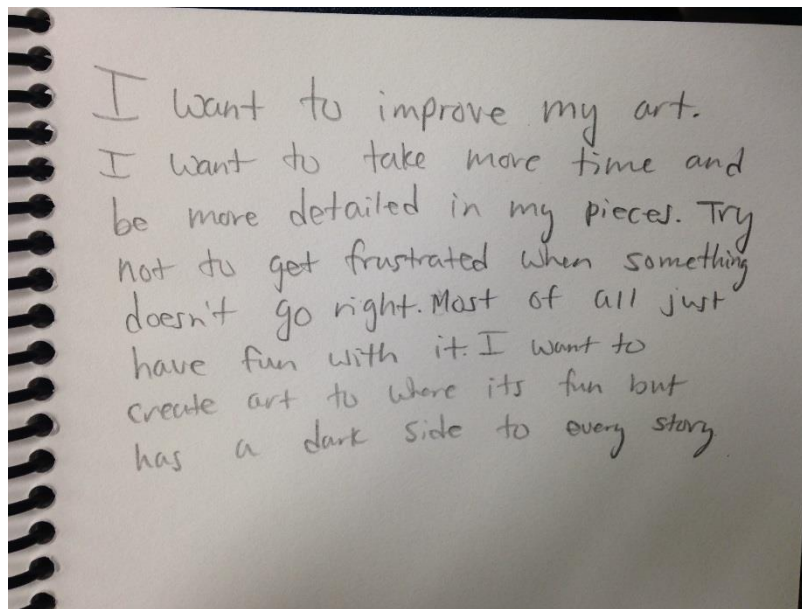 I want to improve my art.
I want to take more time and
be more detailed in my pieces. Try
not to get frustrated when something
doesn't go right. Most of all just
have fun with it. I want to
create art to where its fun but
has a dark side to every story